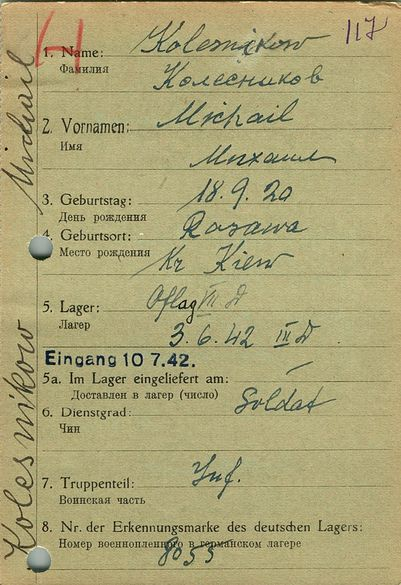 H
117
1. Name: Kolesnikow
Фамилия
Колесников
2. Vornamen: Michail
Имя
Михаил
3. Geburtstag: 18.9.20
День рождения
4. Geburtsort: Rosawa
Место рождения
Kr Kiew
5. Lager: Oflag III D
Лагер
3.6.42 III D
Eingang 10 7.42.
5a. Im Lager eingeliefert am: –
Доставлен в лагер (число)
6. Dienstgrad: Soldat
Чин
7. Truppenteil: Inf.
Воинская часть
8. Nr. der Erkennungsmarke des deutschen Lagers:
Номер военнопленного в германском лагере
8055
Kolesnikow Michail